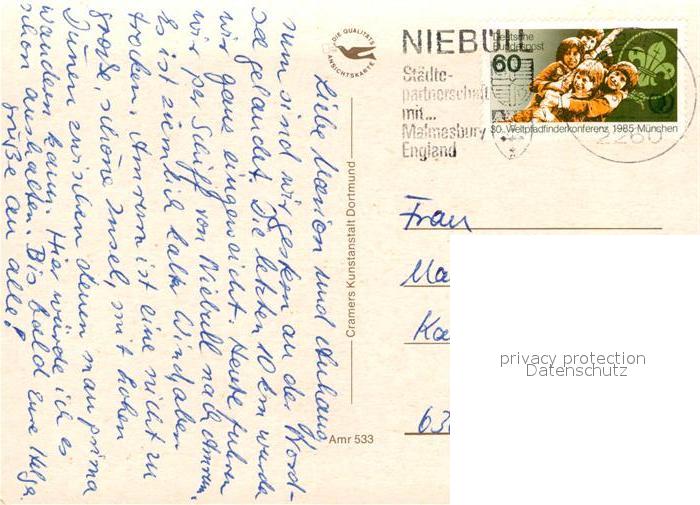 Liebe Marion und Anhang,
nun sind wir gestern an der Nord-
see gelandet. Die letzten 10 km wurden
wir ganz eingeweicht. Heute fuhren
wir per Schiff von Niebüll nach Amrum.
Es ist ziemlich kalt. Wind haben
trocken. Amrum ist eine nicht zu
große schöne Insel, mit hohen
Dünen zwischen denen man prima
wandern kann. Hier würde ich es
schon aushalten. Bis bald Eure Helga
Grüße an alle!
DIE QUALITÄTS
ANSICHTSKARTE
Cramers Kunstanstalt Dortmund
Amr 533
NIEBÜLL
Städte-
partnerschaft
mit...
Malmesbury
England
2260
Deutsche
Bundespost
60
30. Weltpfadfinderkonferenz 1985 München
Frau
Ma
Ka
63
privacy protection
Datenschutz